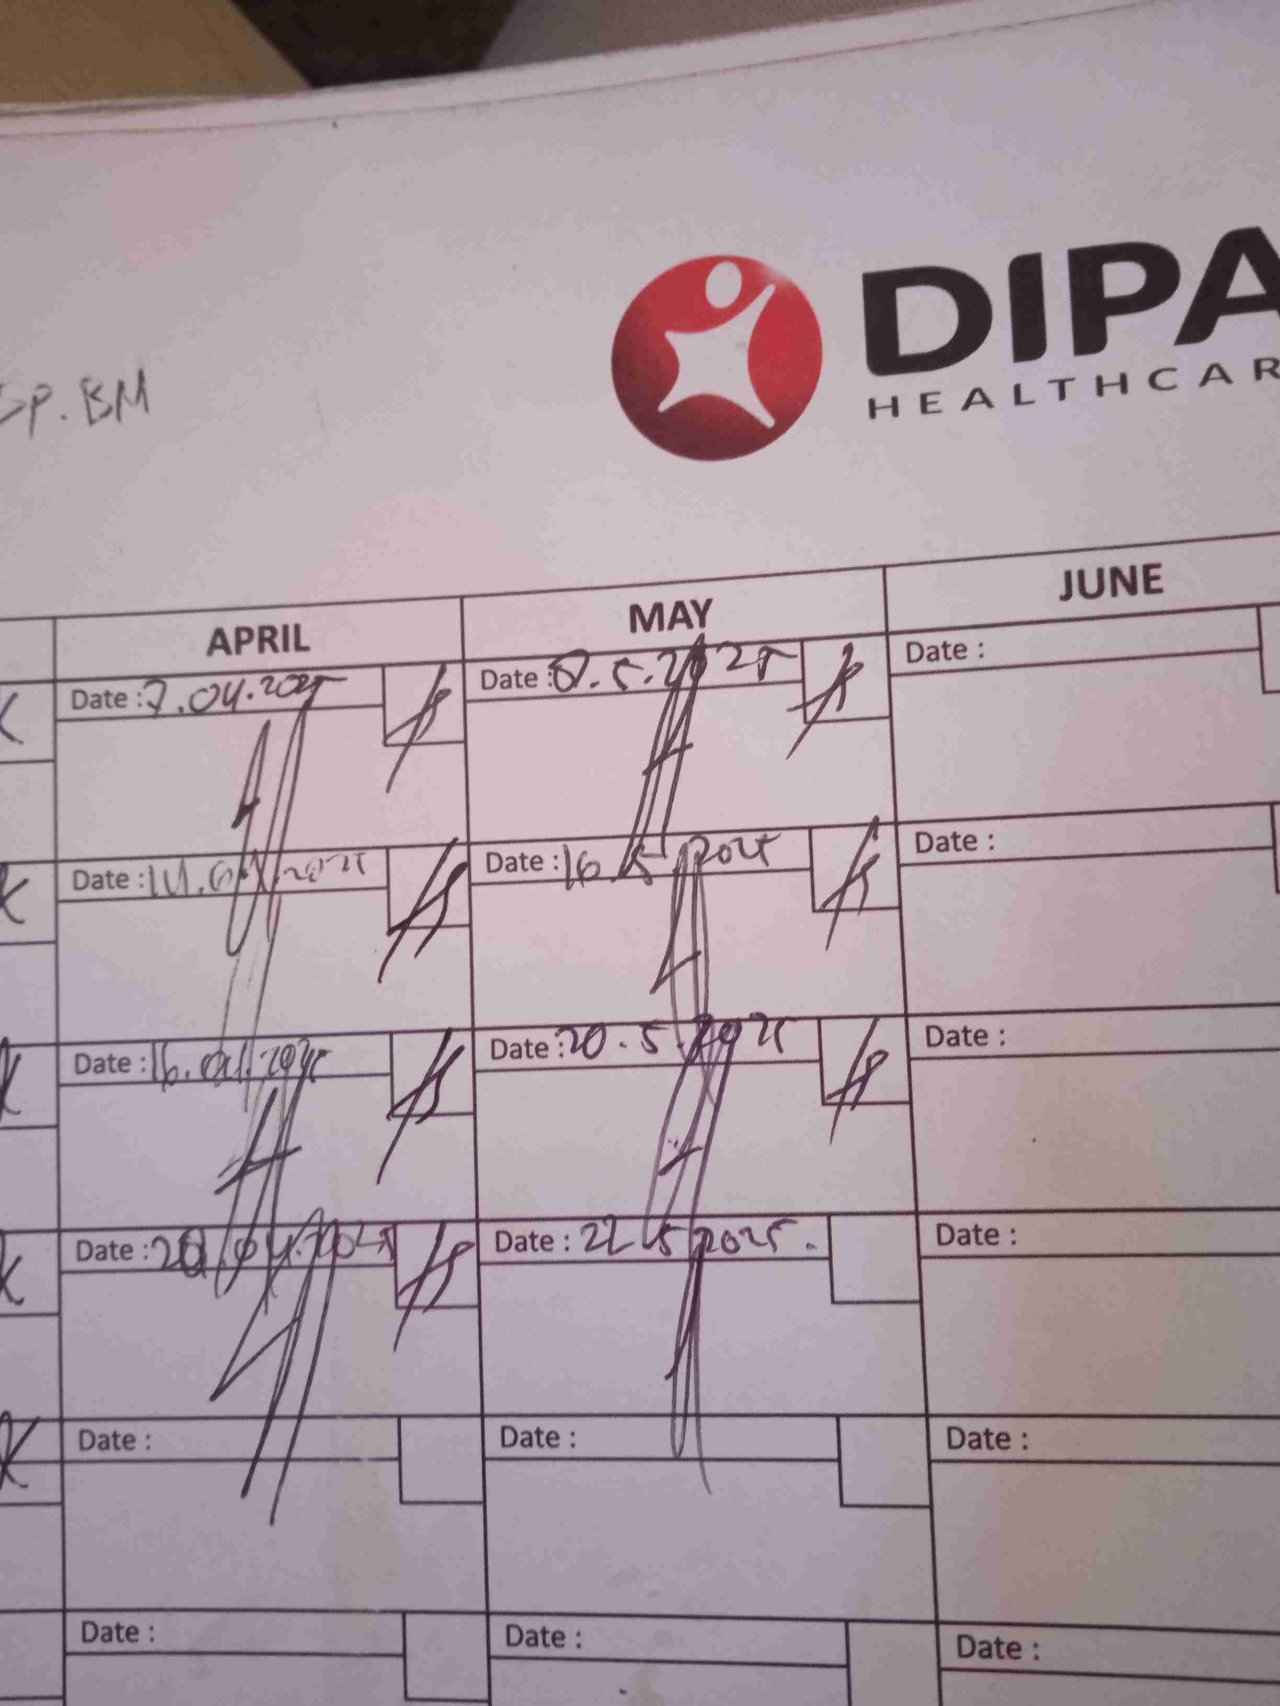 Sp. BM
DIPA
HEALTHCAR
APRIL MAY JUNE
Date : 7.04.2025 Date : 8.5.2025 Date :
Date : 14.04.2025 Date : 16.5.2025 Date :
Date : 16.04.2025 Date : 20.5.2025 Date :
Date : 20.04.2025 Date : 22 5 2025. Date :
Date : Date : Date :
Date : Date : Date :